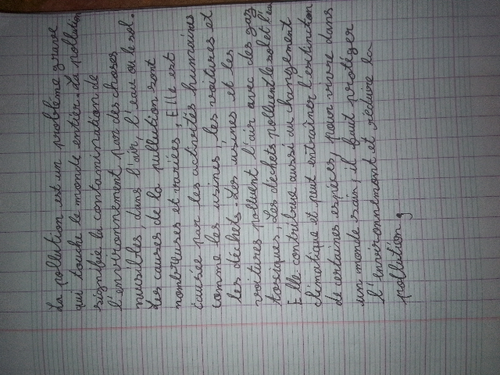 La pollution est un problème grave
qui touche le monde entier. La pollution
signifie la contamination de
l'environnement par des choses
nuisibles, dans l'air, l'eau ou le sol.
Les causes de la pullution sont
nombreuses et variées, Elle est
causée par les activités humaines
comme les usines, les voitures et
les déchets. Les usines et les
voitures polluent l'air avec des gaz
toxiques. Les déchets polluent le sol et l'eau
Elle contribue aussi au changement
climatique et peut entraîner l'extinction
de certaines espèces, pour vivre dans
un monde sain, il faut protéger
l'environnement et réduire la
pollution,